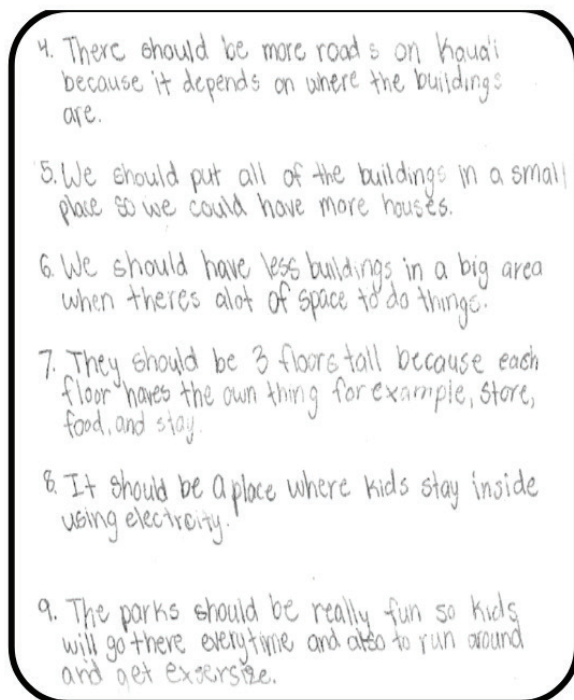 4. There should be more roads on Kaua'i
because it depends on where the buildings
are.
5. We should put all of the buildings in a small
place so we could have more houses.
6. We should have less buildings in a big area
when theres alot of space to do things.
7. They should be 3 floors tall because each
floor haves the own thing for example, store,
food, and stay.
8. It should be a place where kids stay inside
using electrcity.
9. The parks should be really fun so kids
will go there everytime and also to run around
and get exsersize.